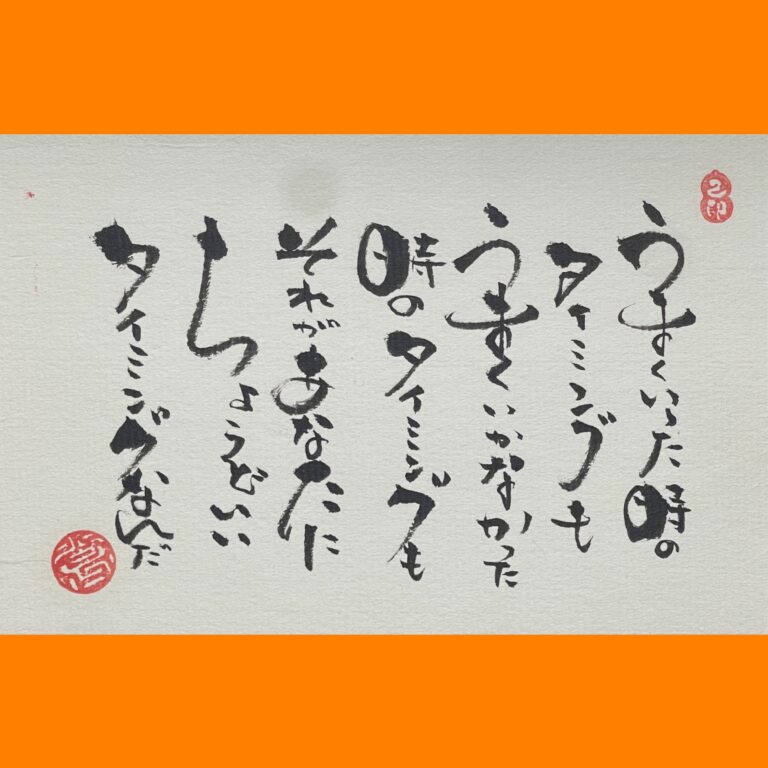 うまくいった時の
タイミングも
うまくいかなかった
時のタイミングも
それがあなたに
ちょうどいい
タイミングなんだ